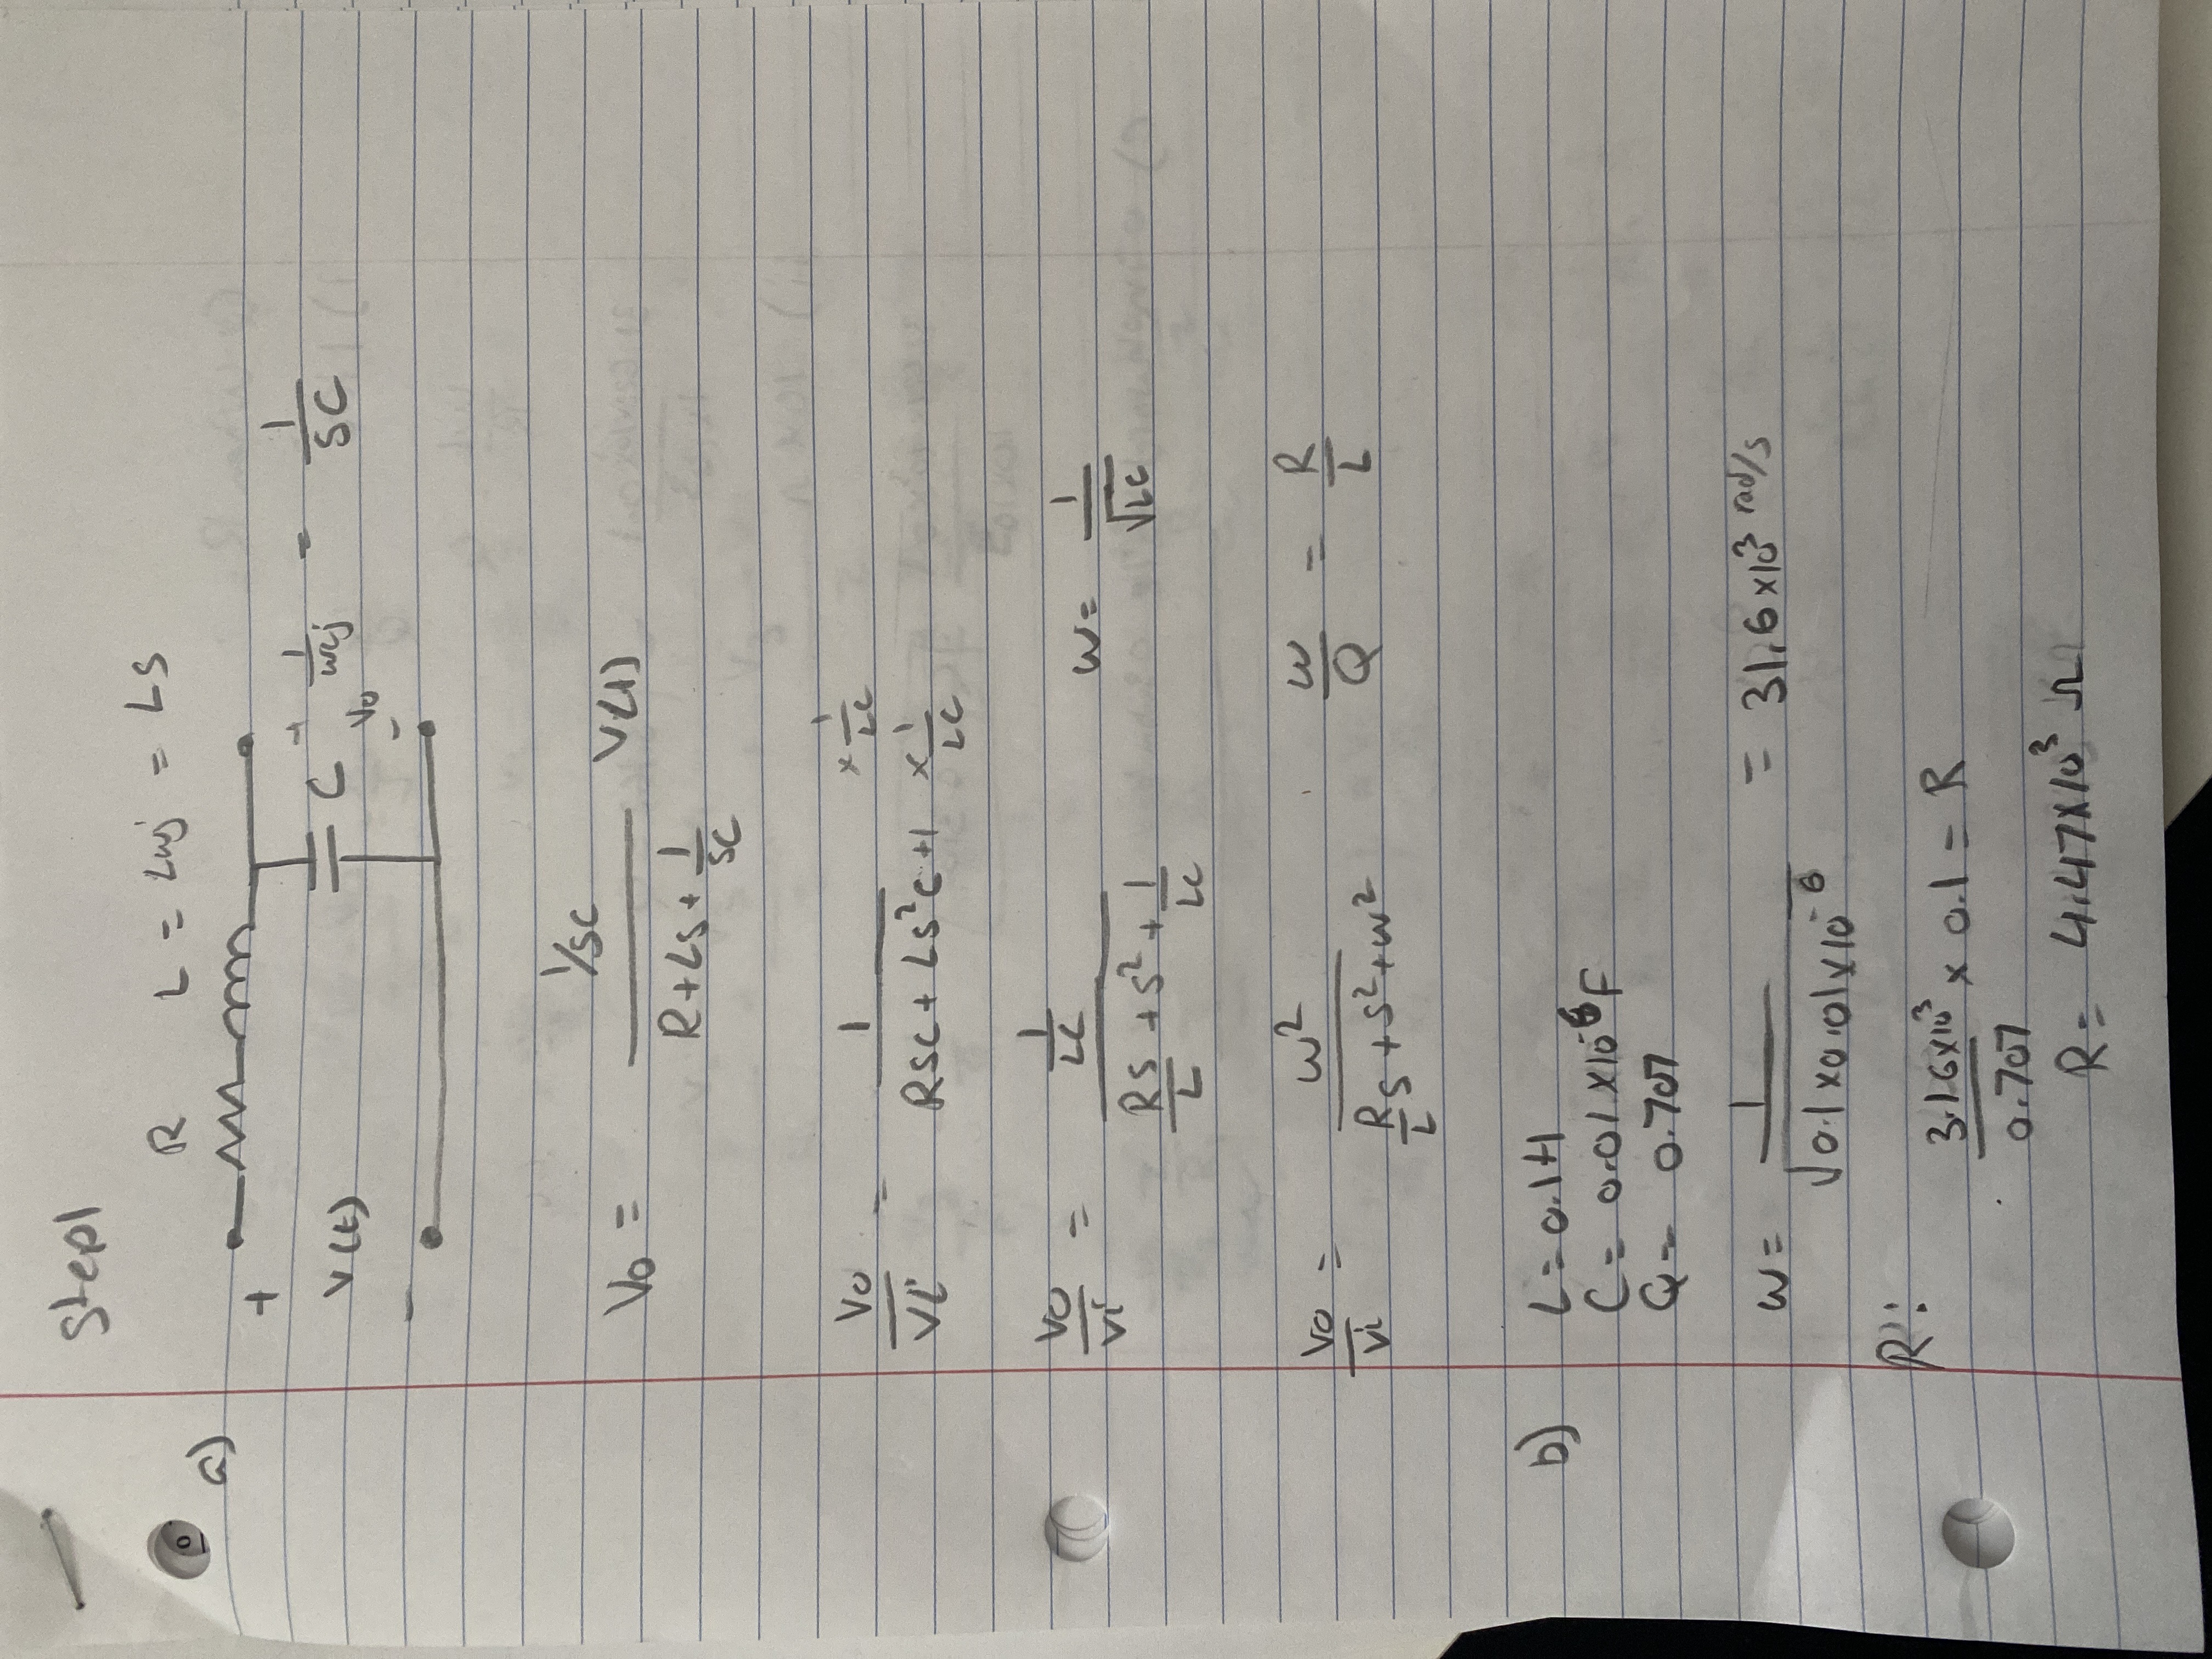 Step1
R L = Lωj = Ls
a)
+
V(t) C + 1/ωCj = 1/SC
Vo
- -
Vo = (1/SC)/(R+Ls+1/SC) V(t)
Vo/Vi = 1/(RSC + Ls²C+1) × 1/LC × 1/LC
Vo/Vi = (1/LC)/(RS/L + S² + 1/LC) ω = 1/√LC
Vo/Vi = ω²/(R/L S + S² + ω²) ω/Q = R/L
b) L = 0.1H
C = 0.01 × 10⁻⁶ F
Q = 0.707
ω = 1/√0.1×0.01×10⁻⁶ = 31.6 ×10³ rad/s
R:
3.16×10³/0.707 × 0.1 = R
R = 4.47×10³ Ω